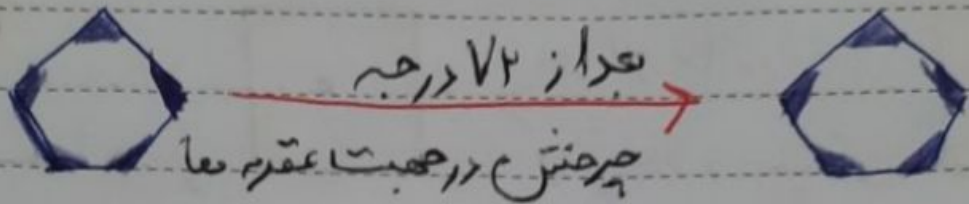 بعد از ۷۲ درجه
چرخش در جهت عقربه ها